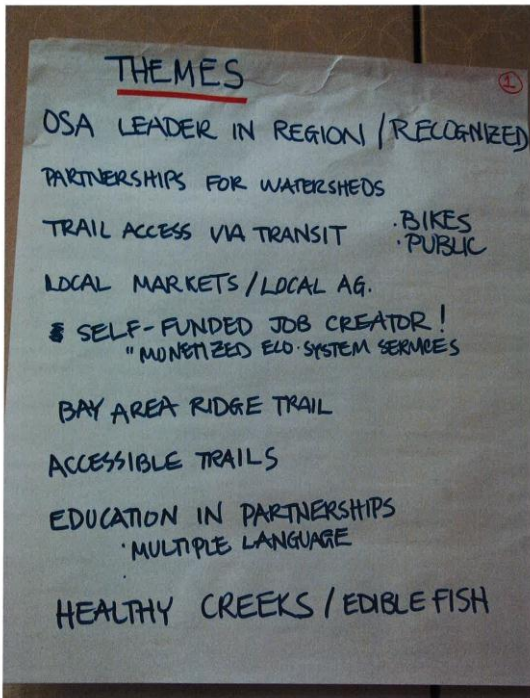 THEMES
1
OSA LEADER IN REGION / RECOGNIZED
PARTNERSHIPS FOR WATERSHEDS
TRAIL ACCESS VIA TRANSIT · BIKES
· PUBLIC
LOCAL MARKETS / LOCAL AG.
SELF-FUNDED JOB CREATOR!
"MONETIZED ECO·SYSTEM SERVICES
BAY AREA RIDGE TRAIL
ACCESSIBLE TRAILS
EDUCATION IN PARTNERSHIPS
· MULTIPLE LANGUAGE
HEALTHY CREEKS / EDIBLE FISH